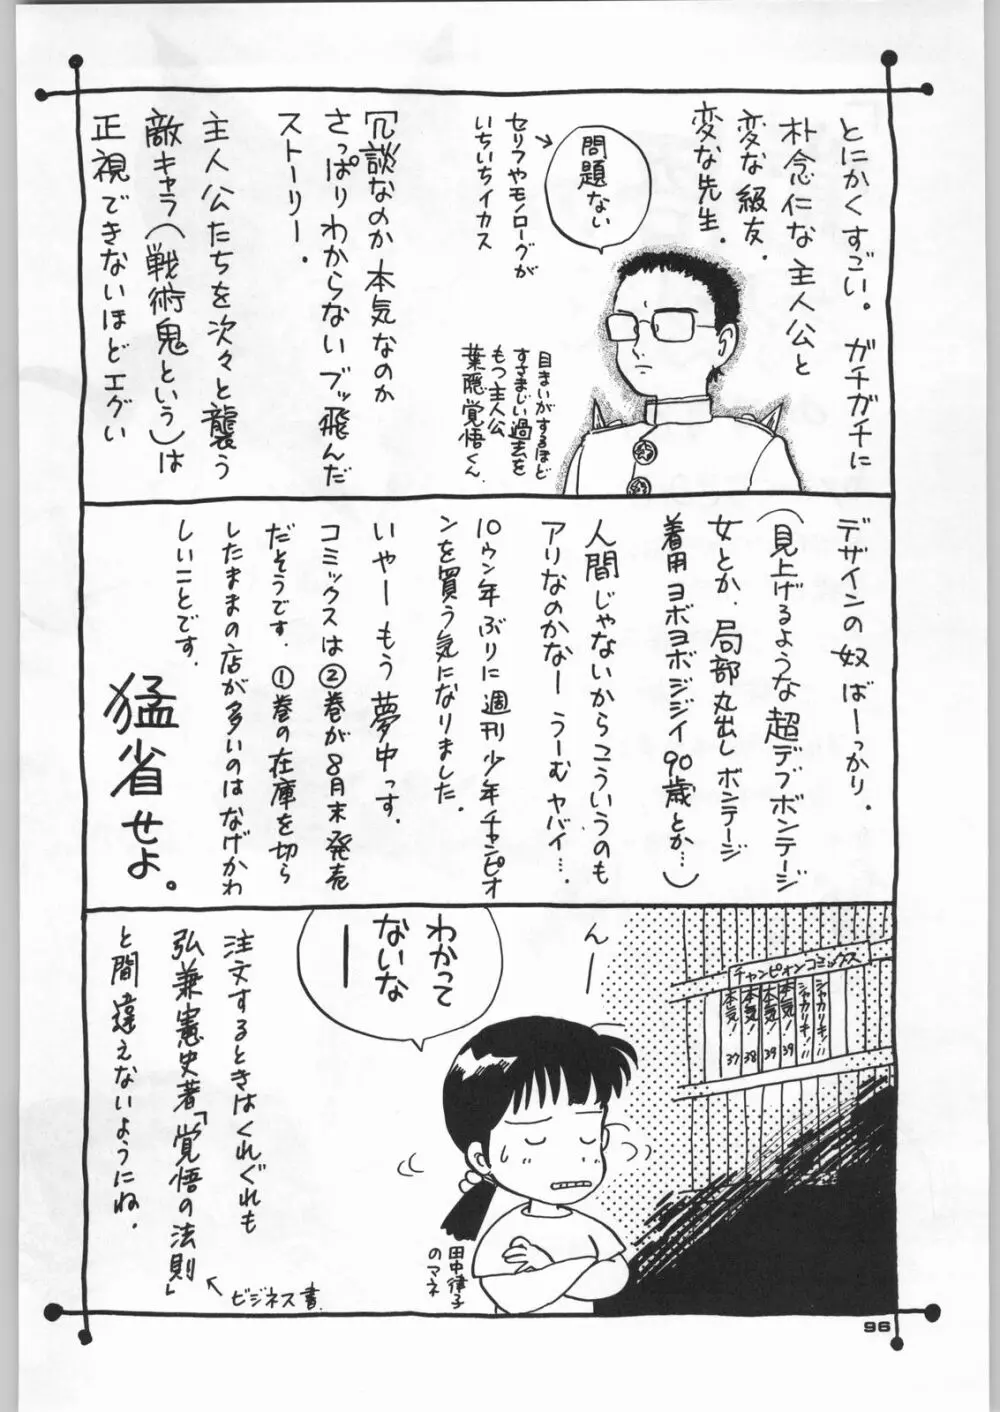 とにかくすごい。ガチガチに
朴念仁な主人公と
変な級友、
変な先生。
問題ない
セリフやモノローグが
いちいちイカス
目まいがするほど
すさまじい過去を
もつ主人公
葉隠覚悟くん
冗談なのか本気なのか
さっぱりわからないブッ飛んだ
ストーリー。
主人公たちを次々と襲う
敵キャラ(戦術鬼という)は
正視できないほどエグい
デザインの奴ばーっかり。
(見上げるような超デブボンテージ
女とか、局部丸出しボンテージ
着用ヨボヨボジジイ90歳とか…)
人間じゃないからこういうのも
アリなのかなー うーむヤバイ…。
10ウン年ぶりに週刊少年チャンピオ
ンを買う気になりました。
いやー もう夢中っす。
コミックスは②巻が8月末発売
だそうです。①巻の在庫を切ら
したままの店が多いのはなげかわ
しいことです。
猛省せよ。
んー
わかって
ないな
ー
チャンピオンコミックス
シャカリキ!11
シャカリキ!11
本気!39
本気!39
本気!38
本気!37
田中律子
のマネ
注文するときはくれぐれも
弘兼憲史著「覚悟の法則」
ビジネス書
と間違えないようにね。
96